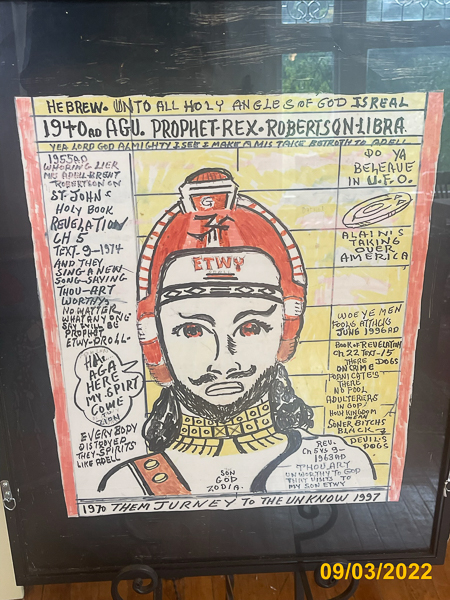 HEBREW. UNTO ALL HOLY ANGLES OF GOD IS REAL
1940AD AGU. PROPHET-REX. ROBERTSON-LIBRA
YEA LORD GOD ALMIGHTY I SEE I MAKE A MIS TAICE BETROTH TO ADELL
1955AD
WHORING LIER
MRS ADELL-BRENT
ROBERTSON ON
ST-JOHN S
HOLY BOOK
REVELATION
CH 5
TEXT-9-1974
AND THEY
SING A NEW
SONG-SAYING
THOU-ART
WORTHY
NO MATTER
WHAT ANY ONE
SAY WILL BE
PROPHET
ETWY-
HAY
AGA
HERE
MY SPIRT
COME
ZION
EVERY BODY
DISTROYED
THEY SPIRITS
LIKE ADELL
G
ETWY
DO YA
BELEAVE
IN U.F.O.
ALAIN IS
TAKING
OVER
AMERICA
WOEYE MEN
FOOLS ATTACKS
JUNE 1996AD
BOOK OF REVELATION
CH.22 TEXT-15
THERE DOGS
ON CRIME
FORNICATE'S
THERE
NO FOOL
ADULTERERS
IN GOD!
HOLY KINGDOM
MEAN
SONER BITCHS
BLACK
DEVIL'S
DOGS
REV.
CH 5 VS 9-
1963AD
THOU ARY
UN WORTHY TO GOD
THAT VISITS TO
MY SON ETWY
SON
GOD
ZODIA.
1970 THEM JURNEY TO THE UNKNOW 1997
09/03/2022